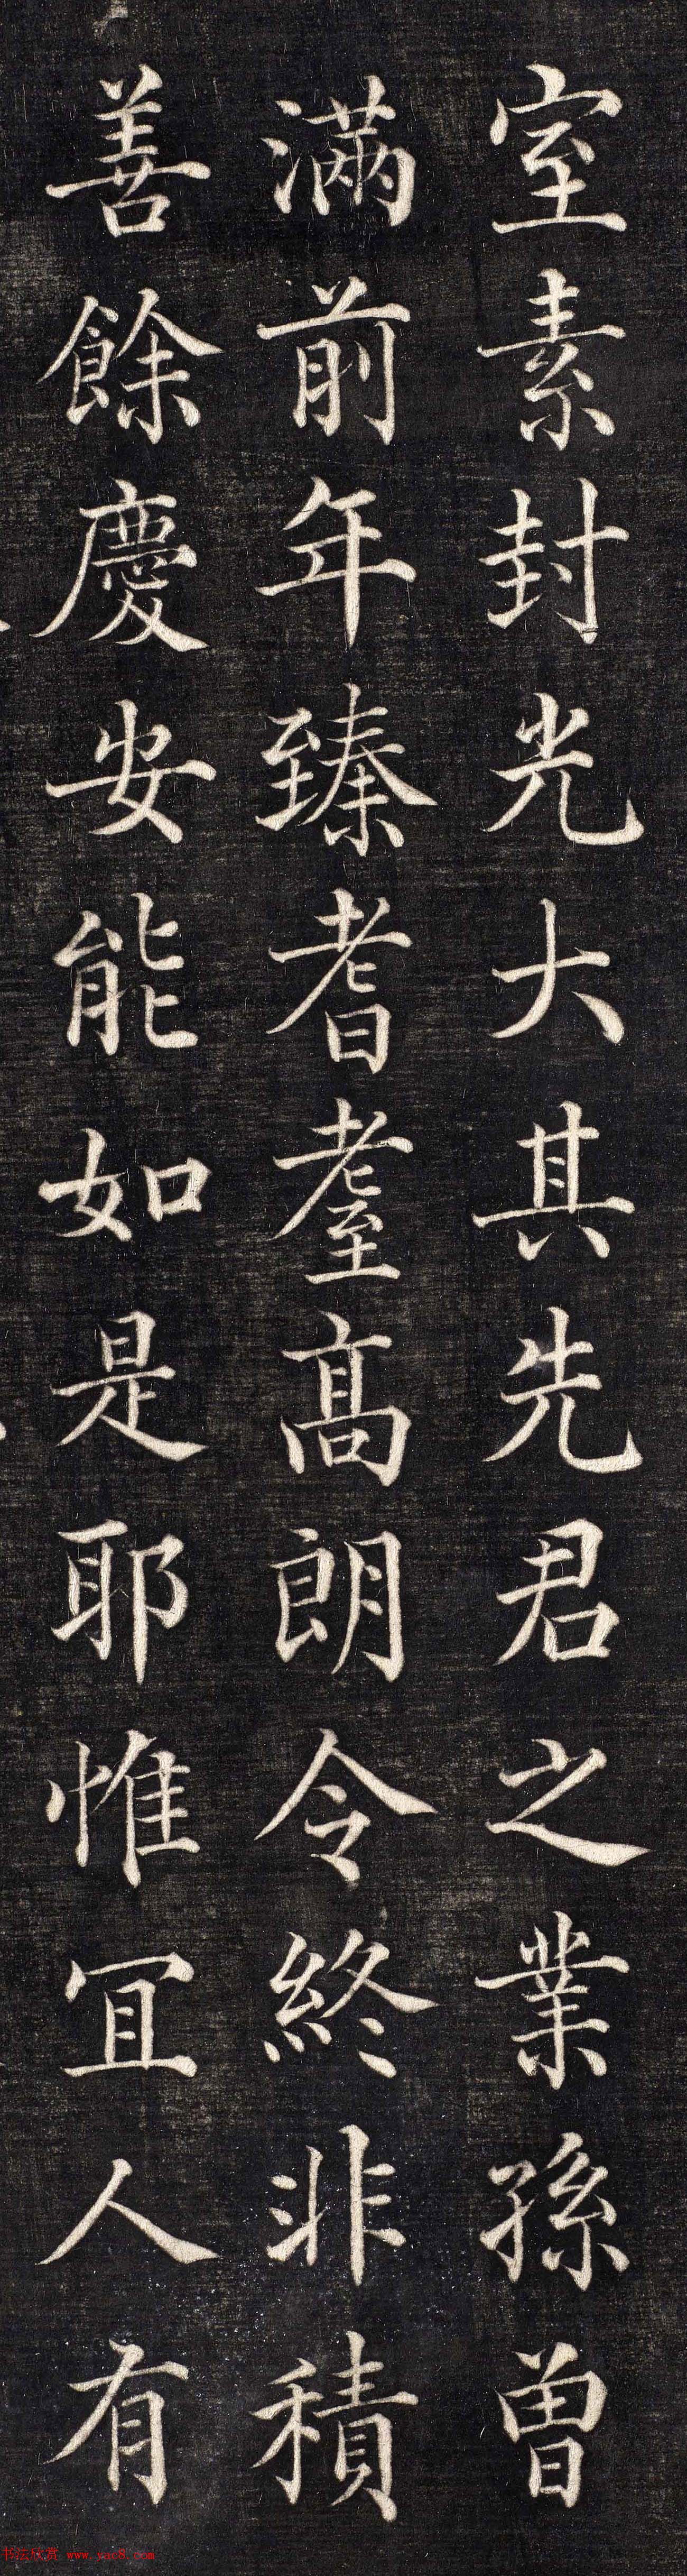 室素封光大其先君之業孫曽
滿前年臻耆耋髙朗令終非積
善餘慶安能如是耶惟冝人有
书法欣赏 www.yac8.com